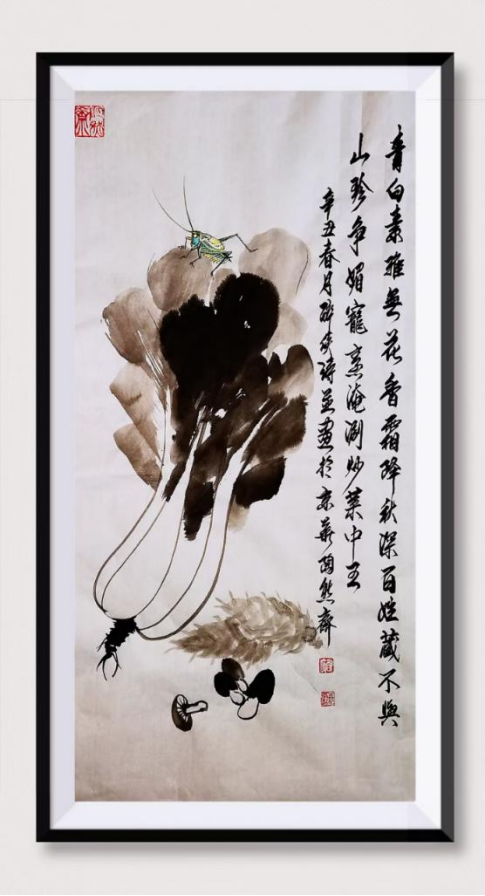 青白素雅無花香霜降秋深百姓藏不與
山珍争媚寵素淹涮炒菜中王
辛丑春月醉生詩並畫於京華陶然齋